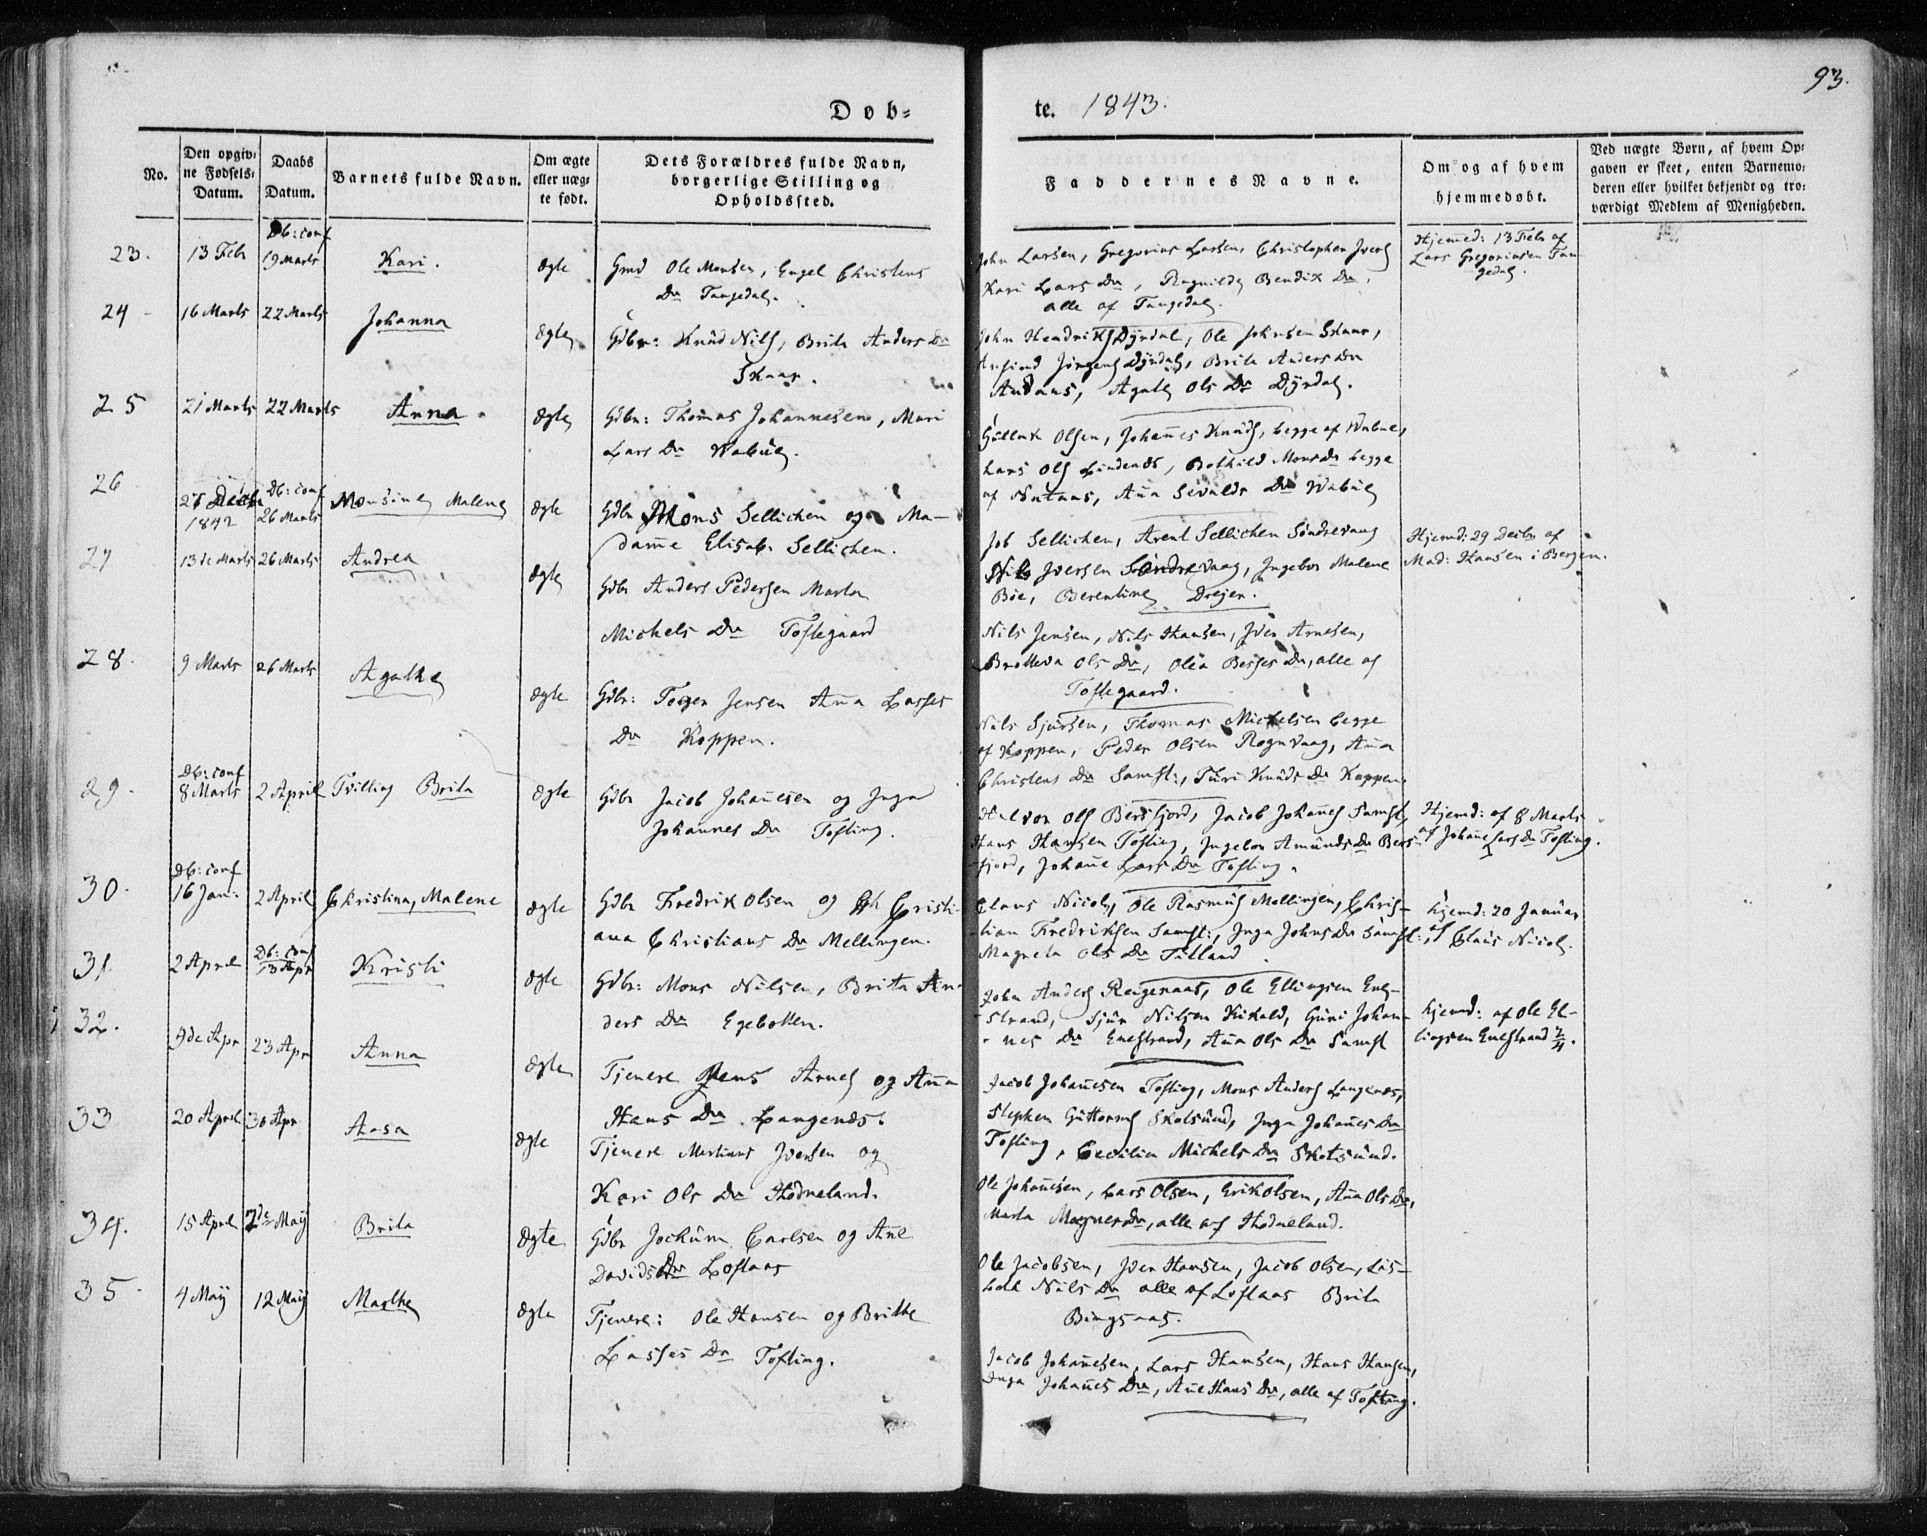 93.
Döb-
te. 1843.
No.
Den opgiv-
ne Fødsels-
Datum.
Daabs
Datum.
Barnets fulde Navn.
Om ægte
eller uæg-
te født.
Dets Forældres fulde Navn,
borgerlige Stilling og
Opholdssted.
Faddernes Navne.
Om og af hvem
hjemmedøbt.
Ved uægte Børn, af hvem Op-
gaven er skeet, enten Barnemo-
deren eller hvilket bekjendt og tro-
værdigt Medlem af Menigheden.
23. 13 Febr Db: conf 19 Marts Kari. ægte
Gmd Ole Monsen, Engel Christens
Dr Tangedal.
John Larsen, Gregorius Larsen, Christopher Ivers
Kari Lars Dr, Ragnilde Bendix Dr,
alle af Tangedal.
Hjemmed: 13 Febr af
Lars Gregoriusen Tan-
gedal.
24 16 Marts 22 Marts Johanna ægte
Gdbr: Knud Nils, Brita Anders Dr
Skaar.
John Hendriks Dyrdal, Ole Johnsen Skaar,
Jørgens Dyrdal, Brita Anders Dr
Agate Ols Dr Dyrdal.
25 21 Marts 22 Marts Anna ægte
Gdbr: Thomas Johannesen, Mari
Lars Dr
Olsen, Johannes Knuds, begge af
Lars Ols Bothild Mons Dr begge
af Nataas, Anna Sivalds Dr
26 Decbr 1842 Db: conf 26 Marts Monsine Malene ægte
Gdbr Mons Sellichen og Ma-
dame Elisab. Sellichen.
Job Sellichen, Arent Sellichen Søndrevaag
Nils Iversen Søndrevaag, Ingebor Malene
Böe, Berentine Drejer.
Hjemd: 29 Decbr af
Mad: Hansen i Bergen.
27 13de Marts 26 Marts Andrea ægte
Gdbr Anders Pedersen Marta
Michels Dr Toftegaard
Nils Jensen, Nils Hansen, Iver Arnesen,
Ols Dr, Olea Dr, alle af
Toftegaard.
28. 9 Marts 26 Marts Agathe ægte
Gdbr: Jensen Anna Lasses
Dr Koppen.
Nils Sjursen, Thomas Michelsen begge
af Koppen, Peder Olsen Rognvaag, Anna
Christens Dr Samst:, Turi Knuds Dr Koppen.
29. Db: conf 8 Marts 2 April Tvilling Brita ægte
Gdbr Jacob Johannesen og Inga
Johannes Dr Tofting.
Halvor Ols Bersfjord, Jacob Johannes Samst,
Hans Hansen Tofting, Ingebor Amunds Dr Bers-
fjord, Johanne Lars Dr Tofting.
Hjemd: af 8 Marts
af Johanne Lars Dr Tofting.
30. Db: conf 16 Jan. 2 April Christina, Malene ægte
Gdbr Fredrik Olsen og Cristi-
ana Christians Dr Mellingen.
Claus Nicols, Ole Rasmus Mellingen, Chris-
tian Fredriksen Samst:, Inga Johns Dr Samst:,
Magreta Ols Dr
hjemd: 20 Januar
af Claus Nicol.
31. 2 April Db: conf 13 Apr Kristi ægte
Gdbr: Mons Nilsen, Brita An-
ders Dr Egebotten.
John Anders Ringenaas, Ole Ellingsen Ene-
strand, Sjur Nilsen Guri Johan-
nes Dr Enestrand, Anna Ols Dr Samst
hjemd: af Ole El-
lingsen Enestrand 2/4.
32. 9de Apr 23 Apr Anna ægte
Tjenere Jens Arnes og Anna
Hans Dr Langenæs.
Jacob Johannesen Tofting, Mons Anders Langenæs,
Stephen Guttorms Skotsund, Inga Johannes Dr
Tofting, Cecilia Michels Dr Skotsund.
33 20 April 30 Apr Aasa ægte
Tjenere Martinus Iversen og
Kari Ols Dr Hodneland.
Ole Johannesen, Lars Olsen, Erik Olsen, Anna Ols Dr,
Marta Magnes Dr, alle af Hodneland.
34. 15 April 7de Maij Brita ægte
Gdbr Jochum Carlsen og Ane
Davids Dr Loftaas
Ole Jacobsen, Iver Hansen, Jacob Olsen, Lis-
beth Nils Dr alle af Loftaas Brita
Bingsaas.
35. 4 Maij 12 Maij Marthe ægte
Tjenere: Ole Hansen og Britte
Lasses Dr Tofting.
Jacob Johannesen, Lars Hansen, Hans Hansen,
Inga Johannes Dr, Ane Hans Dr, alle af Tofting.